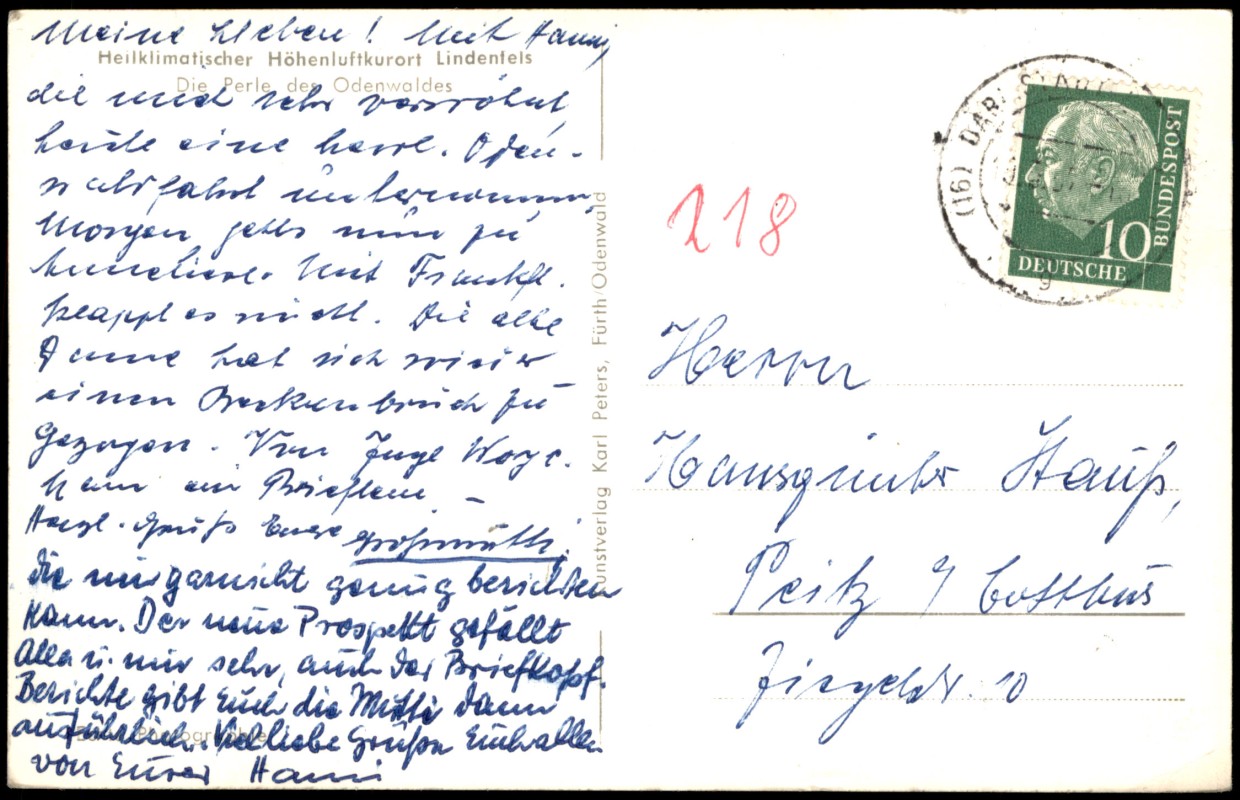 Meine Lieben! Mit Hanni,
Heilklimatischer Höhenluftkurort Lindenfels
Die Perle des Odenwaldes
die mich sehr verwöhnt
heute eine herrl. Oden-
waldfahrt unternommen,
Morgen gehts nun zu
Mit Frankft.
klappt es nicht. Die alte
Dame hat sich wieder
einen Beckenbruch zu
gezogen. Von Inge
kam ein Brieflein –
Herzl. Gruß Eure Großmutti.
die mir garnicht genug berichten
kann. Der neue Prospekt gefällt
Alla u. mir sehr, auch der Briefkopf.
Berichte gibt Euch die Mutti dann
ausführlich. Viel liebe Grüße Euch allen
von Eurer Hanni
Kunstverlag Karl Peters, Fürth/Odenwald
(16) DARMSTADT
g
DEUTSCHE
BUNDESPOST
10
218
Herrn
Hansgünter
Peitz b/ Cottbus
Ziegelstr. 10